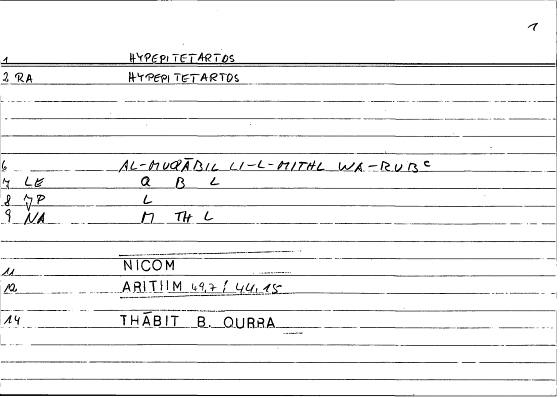 1
1 HYPEPITETARTOS
2 RA HYPEPITETARTOS
6 AL-MUQĀBIL LI-L-MITHL WA-RUBᶜ
7 LE Q B L
8 JP L
9 NA M TH L
11 NICOM
12 ARITIIM 49,7 / 44,15
14 THĀBIT B. QURRA